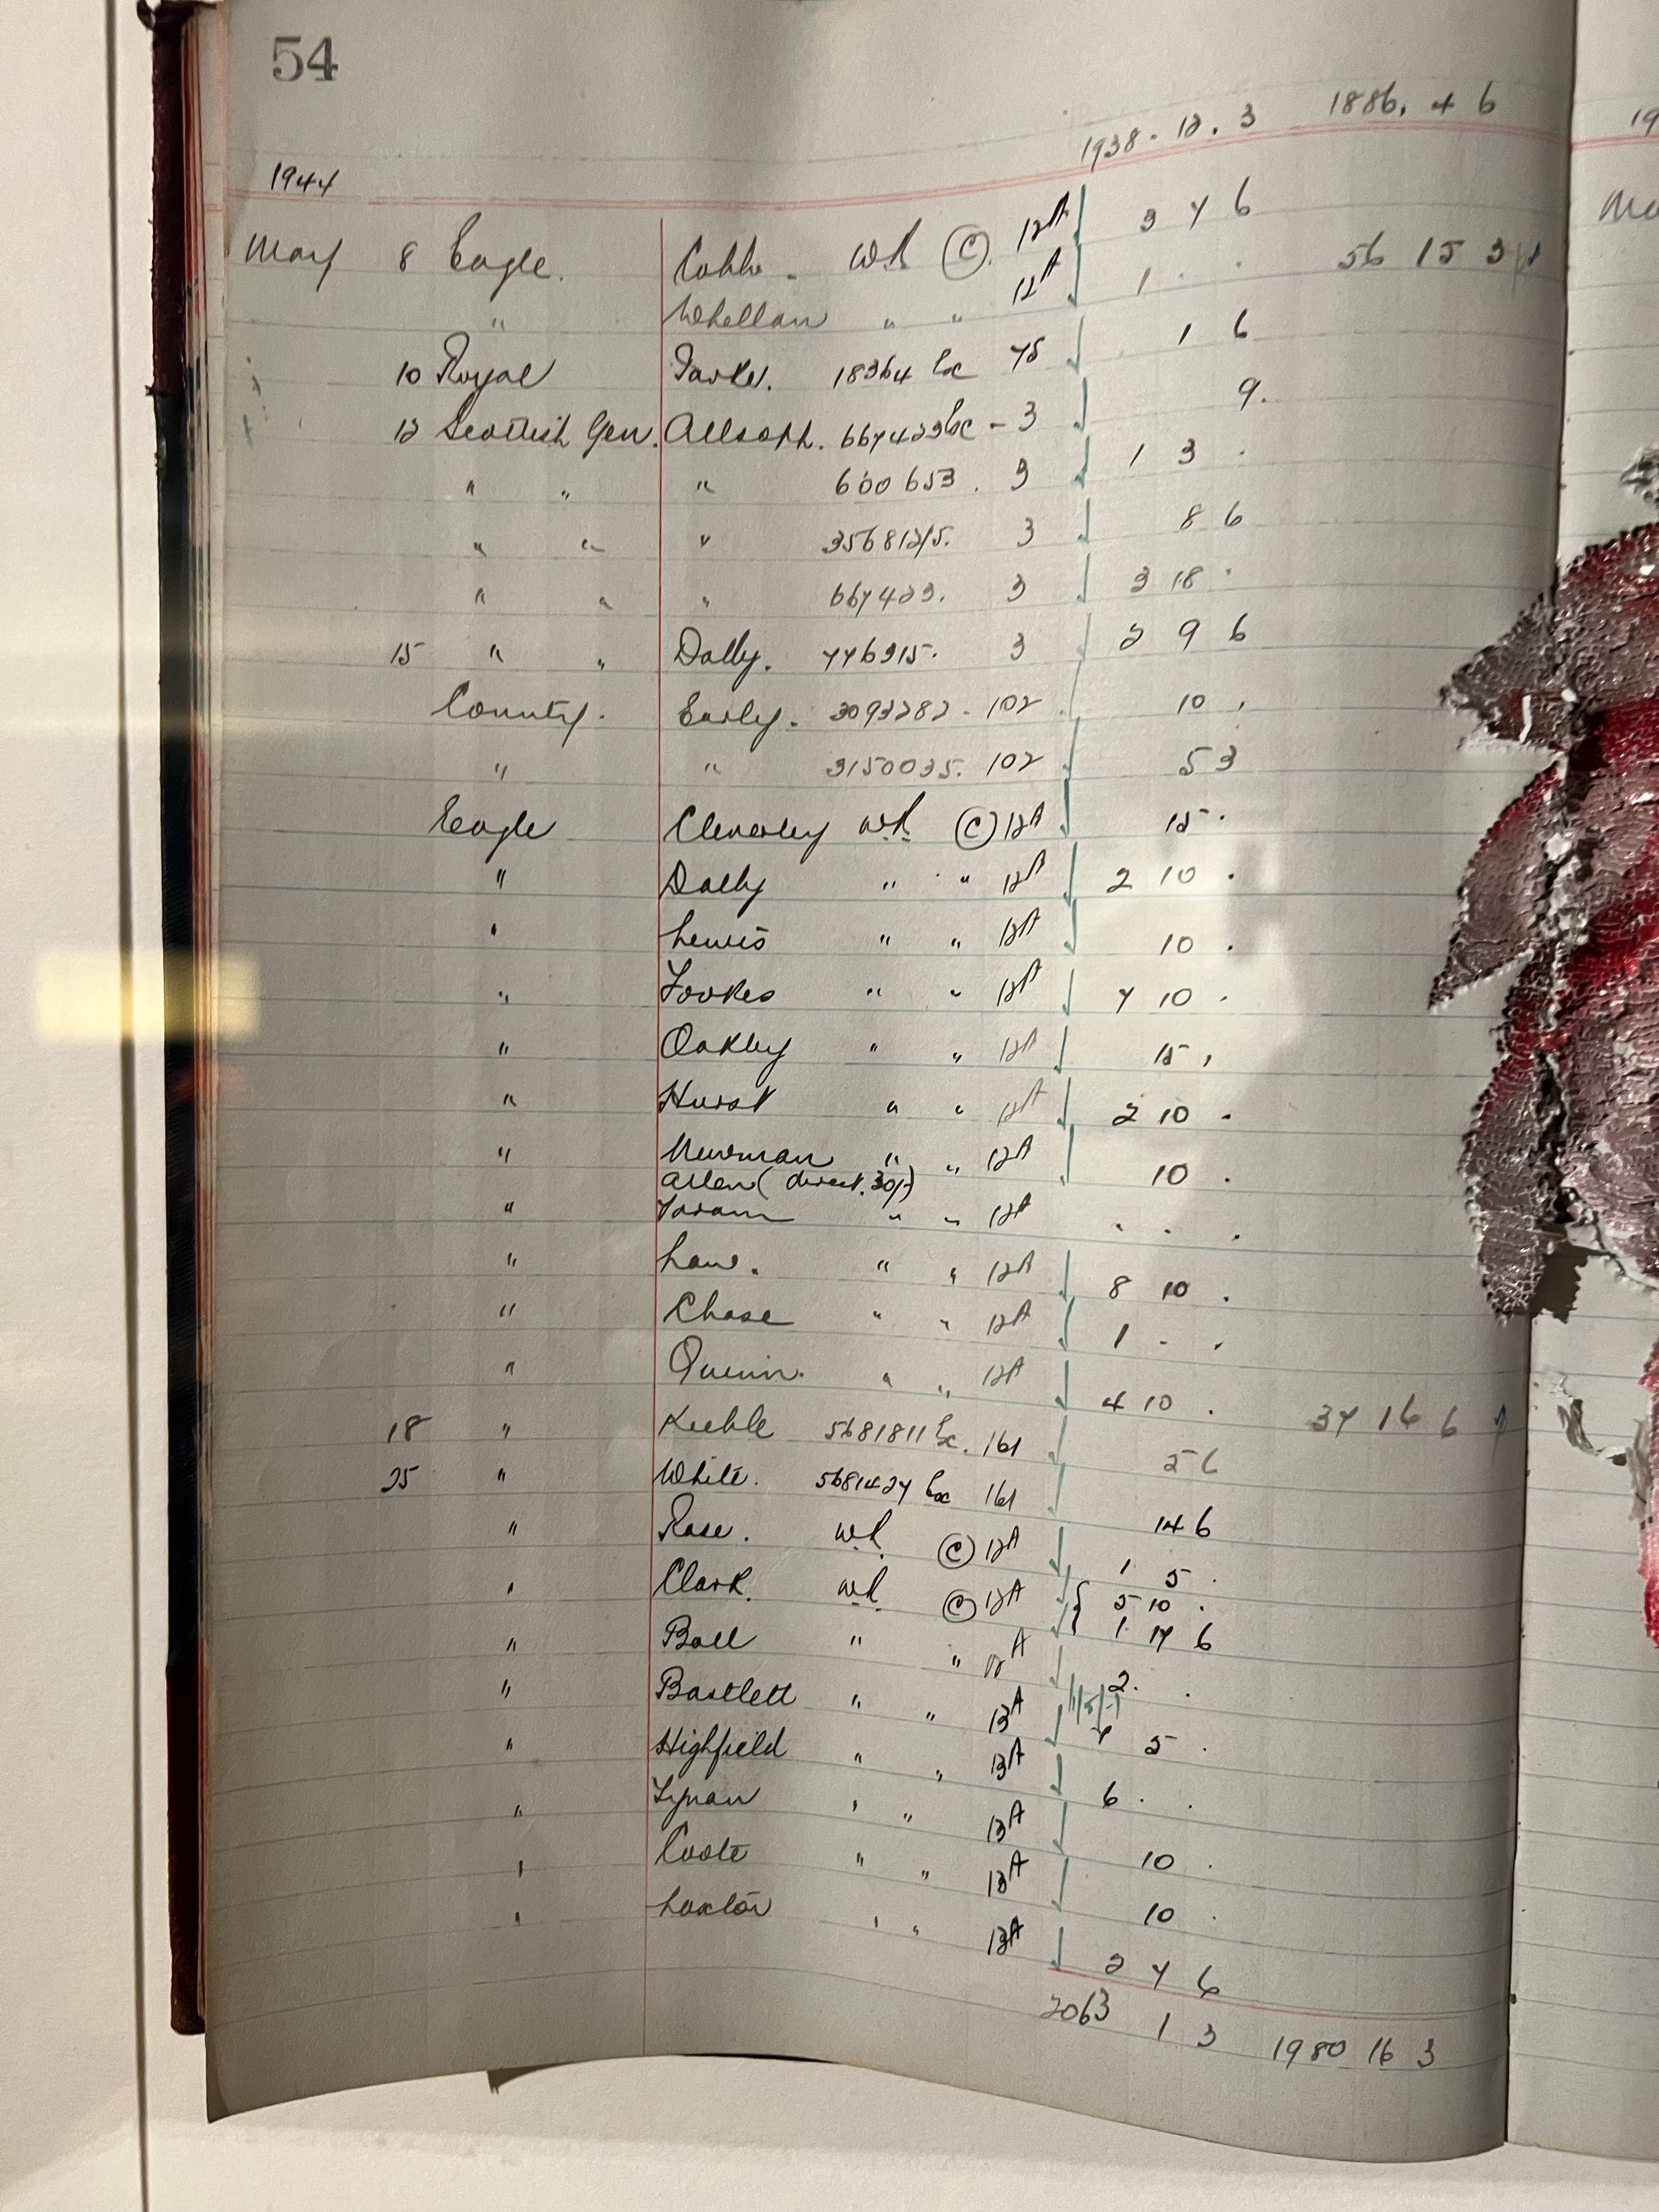 54
1938 - 12 . 3 1886 . 4 6
1944 19
May 8 Eagle. Cobb - W.R. (C). 12A 3 7 6
56 15 3
" Whellan " " 12A 1 . .
10 Royal 18364 45 1 6
12 Scottish Gen. Allsoph. 667423 - 3 9.
" " " 600653 . 3 1 3 .
" " " 356812/5. 3 8 6
" " " 667423. 3 3 18 .
15 " " Dolby. 776915. 3 2 9 6
County. Early. 3093282 - 102 10 .
" " 3150035. 102 5 3
Eagle Cleverley W.R. (C) 12A 15 .
" Dolby " " 12A 2 10 .
" Lewis " " 12A 10 .
" Fookes " " 12A 7 10 .
" Oakley " " 12A 15 .
" Hurst " " 12A 2 10 .
" Newman " " 12A 10 .
Allen (direct. 30/-)
" " " 12A . . .
" Law. " " 12A 8 10 .
" Chase " " 12A 1 - .
" Quinn. " " 12A 4 10 . 37 16 6
18 " Keeble 5681811 161 2 6
25 " White. 5681427 161 14 6
" Rose. W.R. (C) 12A 1 5 .
" Clark. W.R. (C) 12A { 5 10 .
1 17 6
" Ball " " 12A 2 . .
" Bartlett " " 12A 5 .
" Highfield " " 12A 6 . .
" Lynan " " 12A 10 .
" Coote " " 12A 10 .
" Luxton " " 12A 2 7 6
2063 1 3 1980 16 3